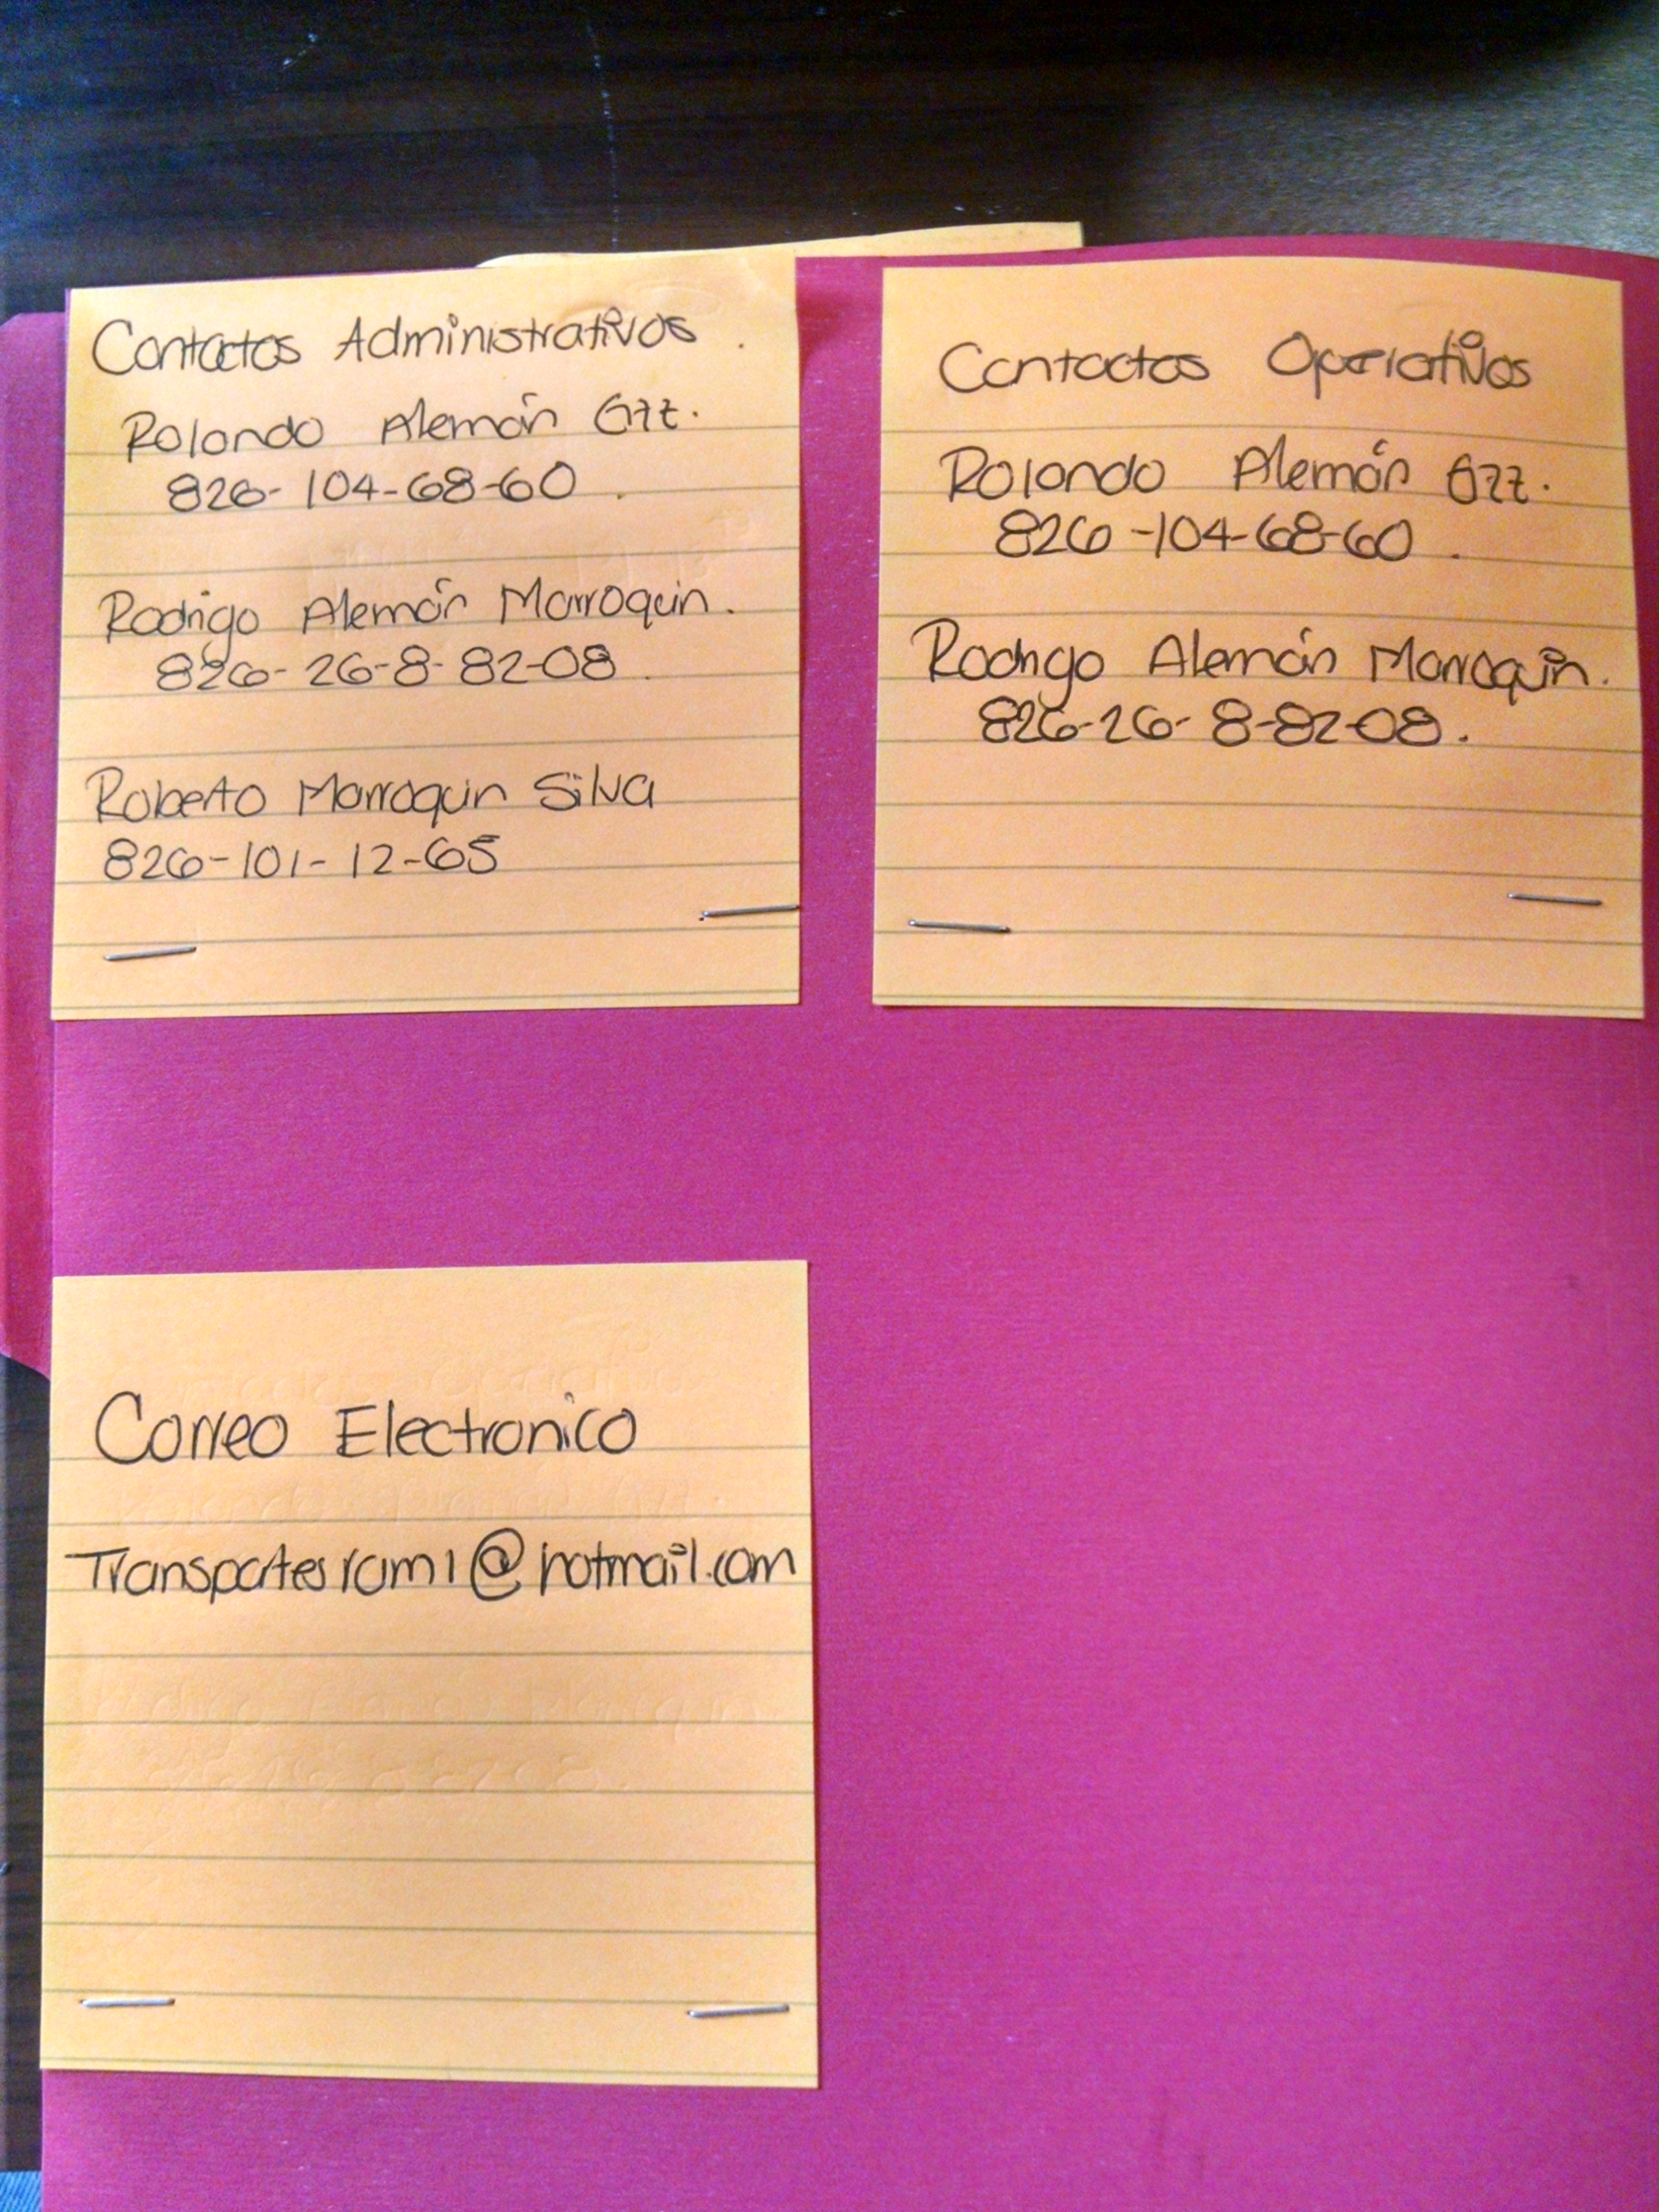 Contactos Administrativos.
Rolando Alemán Gzz.
826-104-68-60.
Rodrigo Alemán Marroquin.
826-26-8-82-08.
Roberto Marroquin Silva
826-101-12-65
Contactos Operativos
Rolando Alemán Gzz.
826-104-68-60.
Rodrigo Alemán Marroquin.
826-26-8-82-08.
Correo Electronico
Transportesram1@hotmail.com